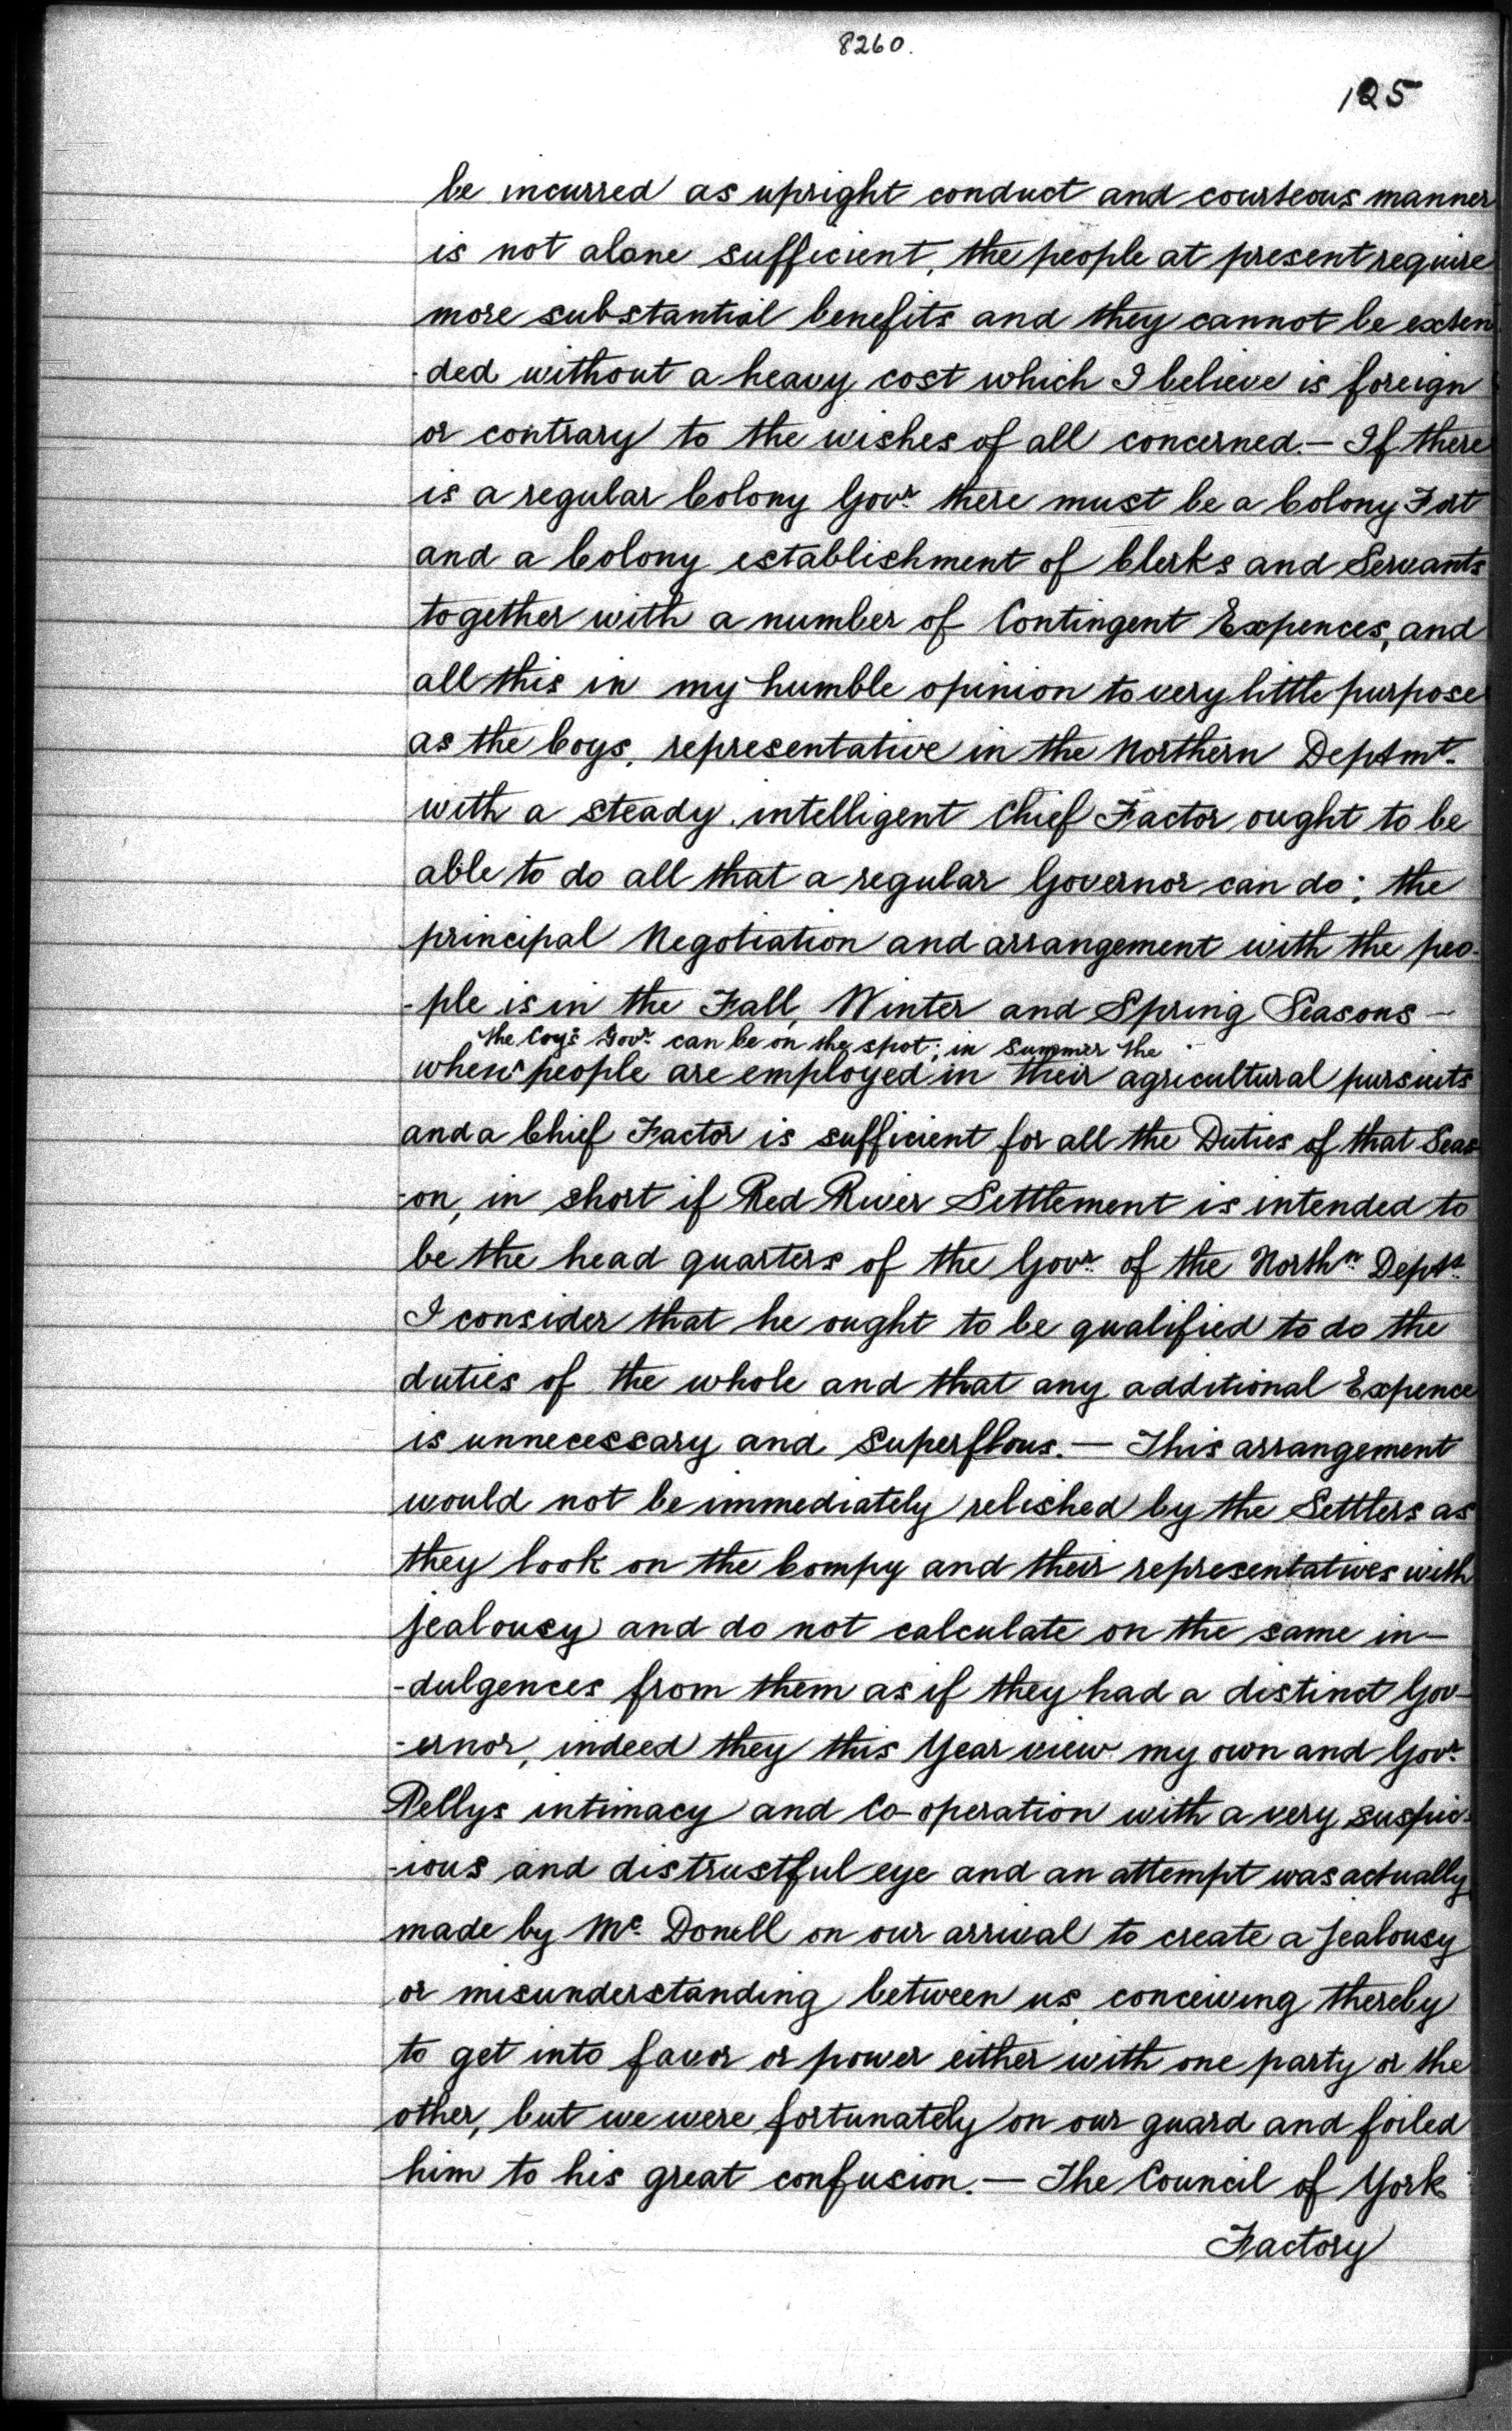 8260.
125
be incurred as upright conduct and courteous manner
is not alone sufficient, the people at present require
more substantial benefits and they cannot be exten
-ded without a heavy cost which I believe is foreign
or contrary to the wishes of all concerned. — If there
is a regular Colony Govr. there must be a Colony Fort
and a Colony establishment of Clerks and Servants
together with a number of Contingent Expences, and
all this in my humble opinion to very little purpose
as the Coys. representative in the Northern Deptmt.
with a steady intelligent Chief Factor ought to be
able to do all that a regular Governor can do; the
principal Negotiation and arrangement with the peo-
-ple is in the Fall, Winter and Spring Seasons —
the Coy's Govr. can be on the spot; in Summer the
when people are employed in their agricultural pursuits
and a Chief Factor is sufficient for all the Duties of that Seas
-on, in short if Red River Settlement is intended to
be the head quarters of the Govr. of the Northn. Deptt.
I consider that he ought to be qualified to do the
duties of the whole and that any additional Expence
is unnecessary and Superflous. — This arrangement
would not be immediately relished by the Settlers as
they look on the Compy and their representatives with
jealousy and do not calculate on the same in-
-dulgences from them as if they had a distinct Gov-
-ernor, indeed they this Year view my own and Govr.
Pellys intimacy and Co-operation with a very suspic-
-ious and distrustful eye and an attempt was actually
made by Mc. Donell on our arrival to create a jealousy
or misunderstanding between us, conceiving thereby
to get into favor or power either with one party or the
other, but we were fortunately on our guard and foiled
him to his great confusion. — The Council of York
Factory